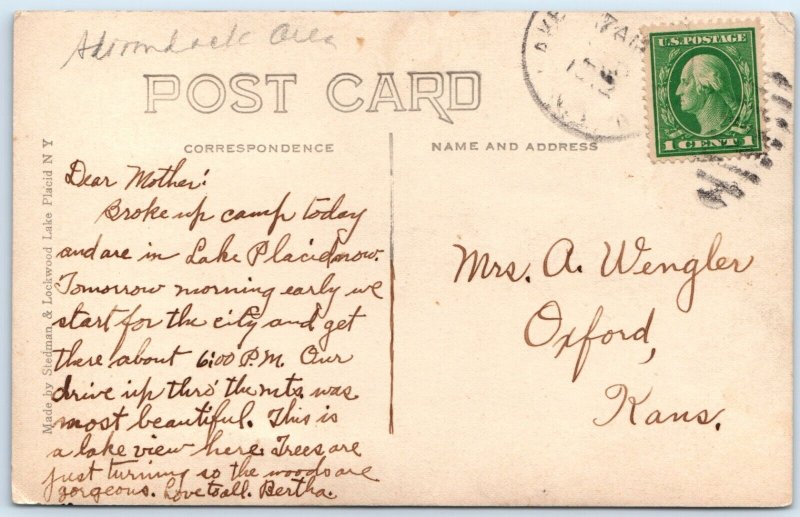 Adirondack Area
POST CARD
CORRESPONDENCE
Dear Mother:
Broke up camp today
and are in Lake Placid now.
Tomorrow morning early we
start for the city and get
there about 6:00 P.M. Our
drive up thro' the mts. was
most beautiful. This is
a lake view here. Trees are
just turning so the woods are
gorgeous. Love to all. Bertha.
Made by Stedman & Lockwood Lake Placid N Y
NAME AND ADDRESS
Mrs. A. Wengler
Oxford,
Kans.
U.S. POSTAGE
1 CENT 1